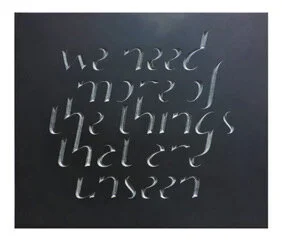 we need
more of
the things
that are
unseen